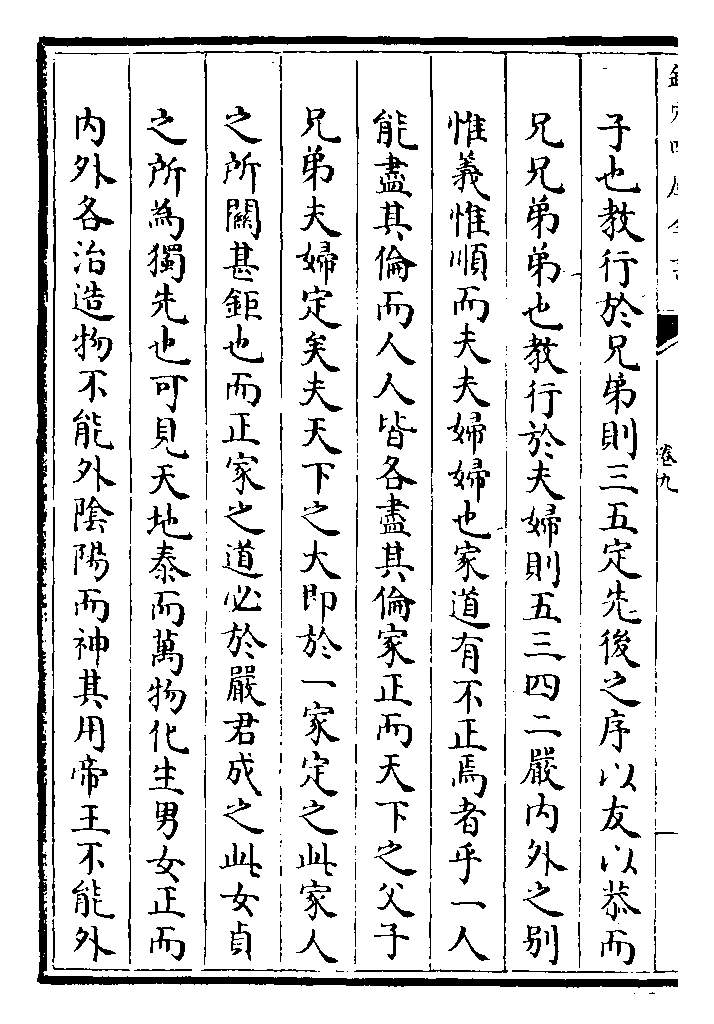 欽定四庫全書
卷九
子也教行於兄弟則三五定先後之序以友以恭而
兄兄弟弟也教行於夫婦則五三四二嚴内外之别
惟義惟順而夫夫婦婦也家道有不正焉者乎一人
能盡其倫而人人皆各盡其倫家正而天下之父子
兄弟夫婦定矣夫天下之大即於一家定之此家人
之所闗甚鉅也而正家之道必於嚴君成之此女貞
之所為獨先也可見天地泰而萬物化生男女正而
内外各治造物不能外陰陽而神其用帝王不能外